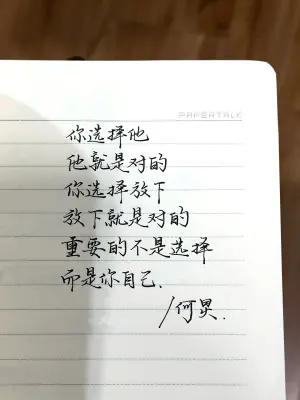 PAPERTALK
你选择他
他就是对的
你选择放下
放下就是对的
重要的不是选择
而是你自己.
/何炅.